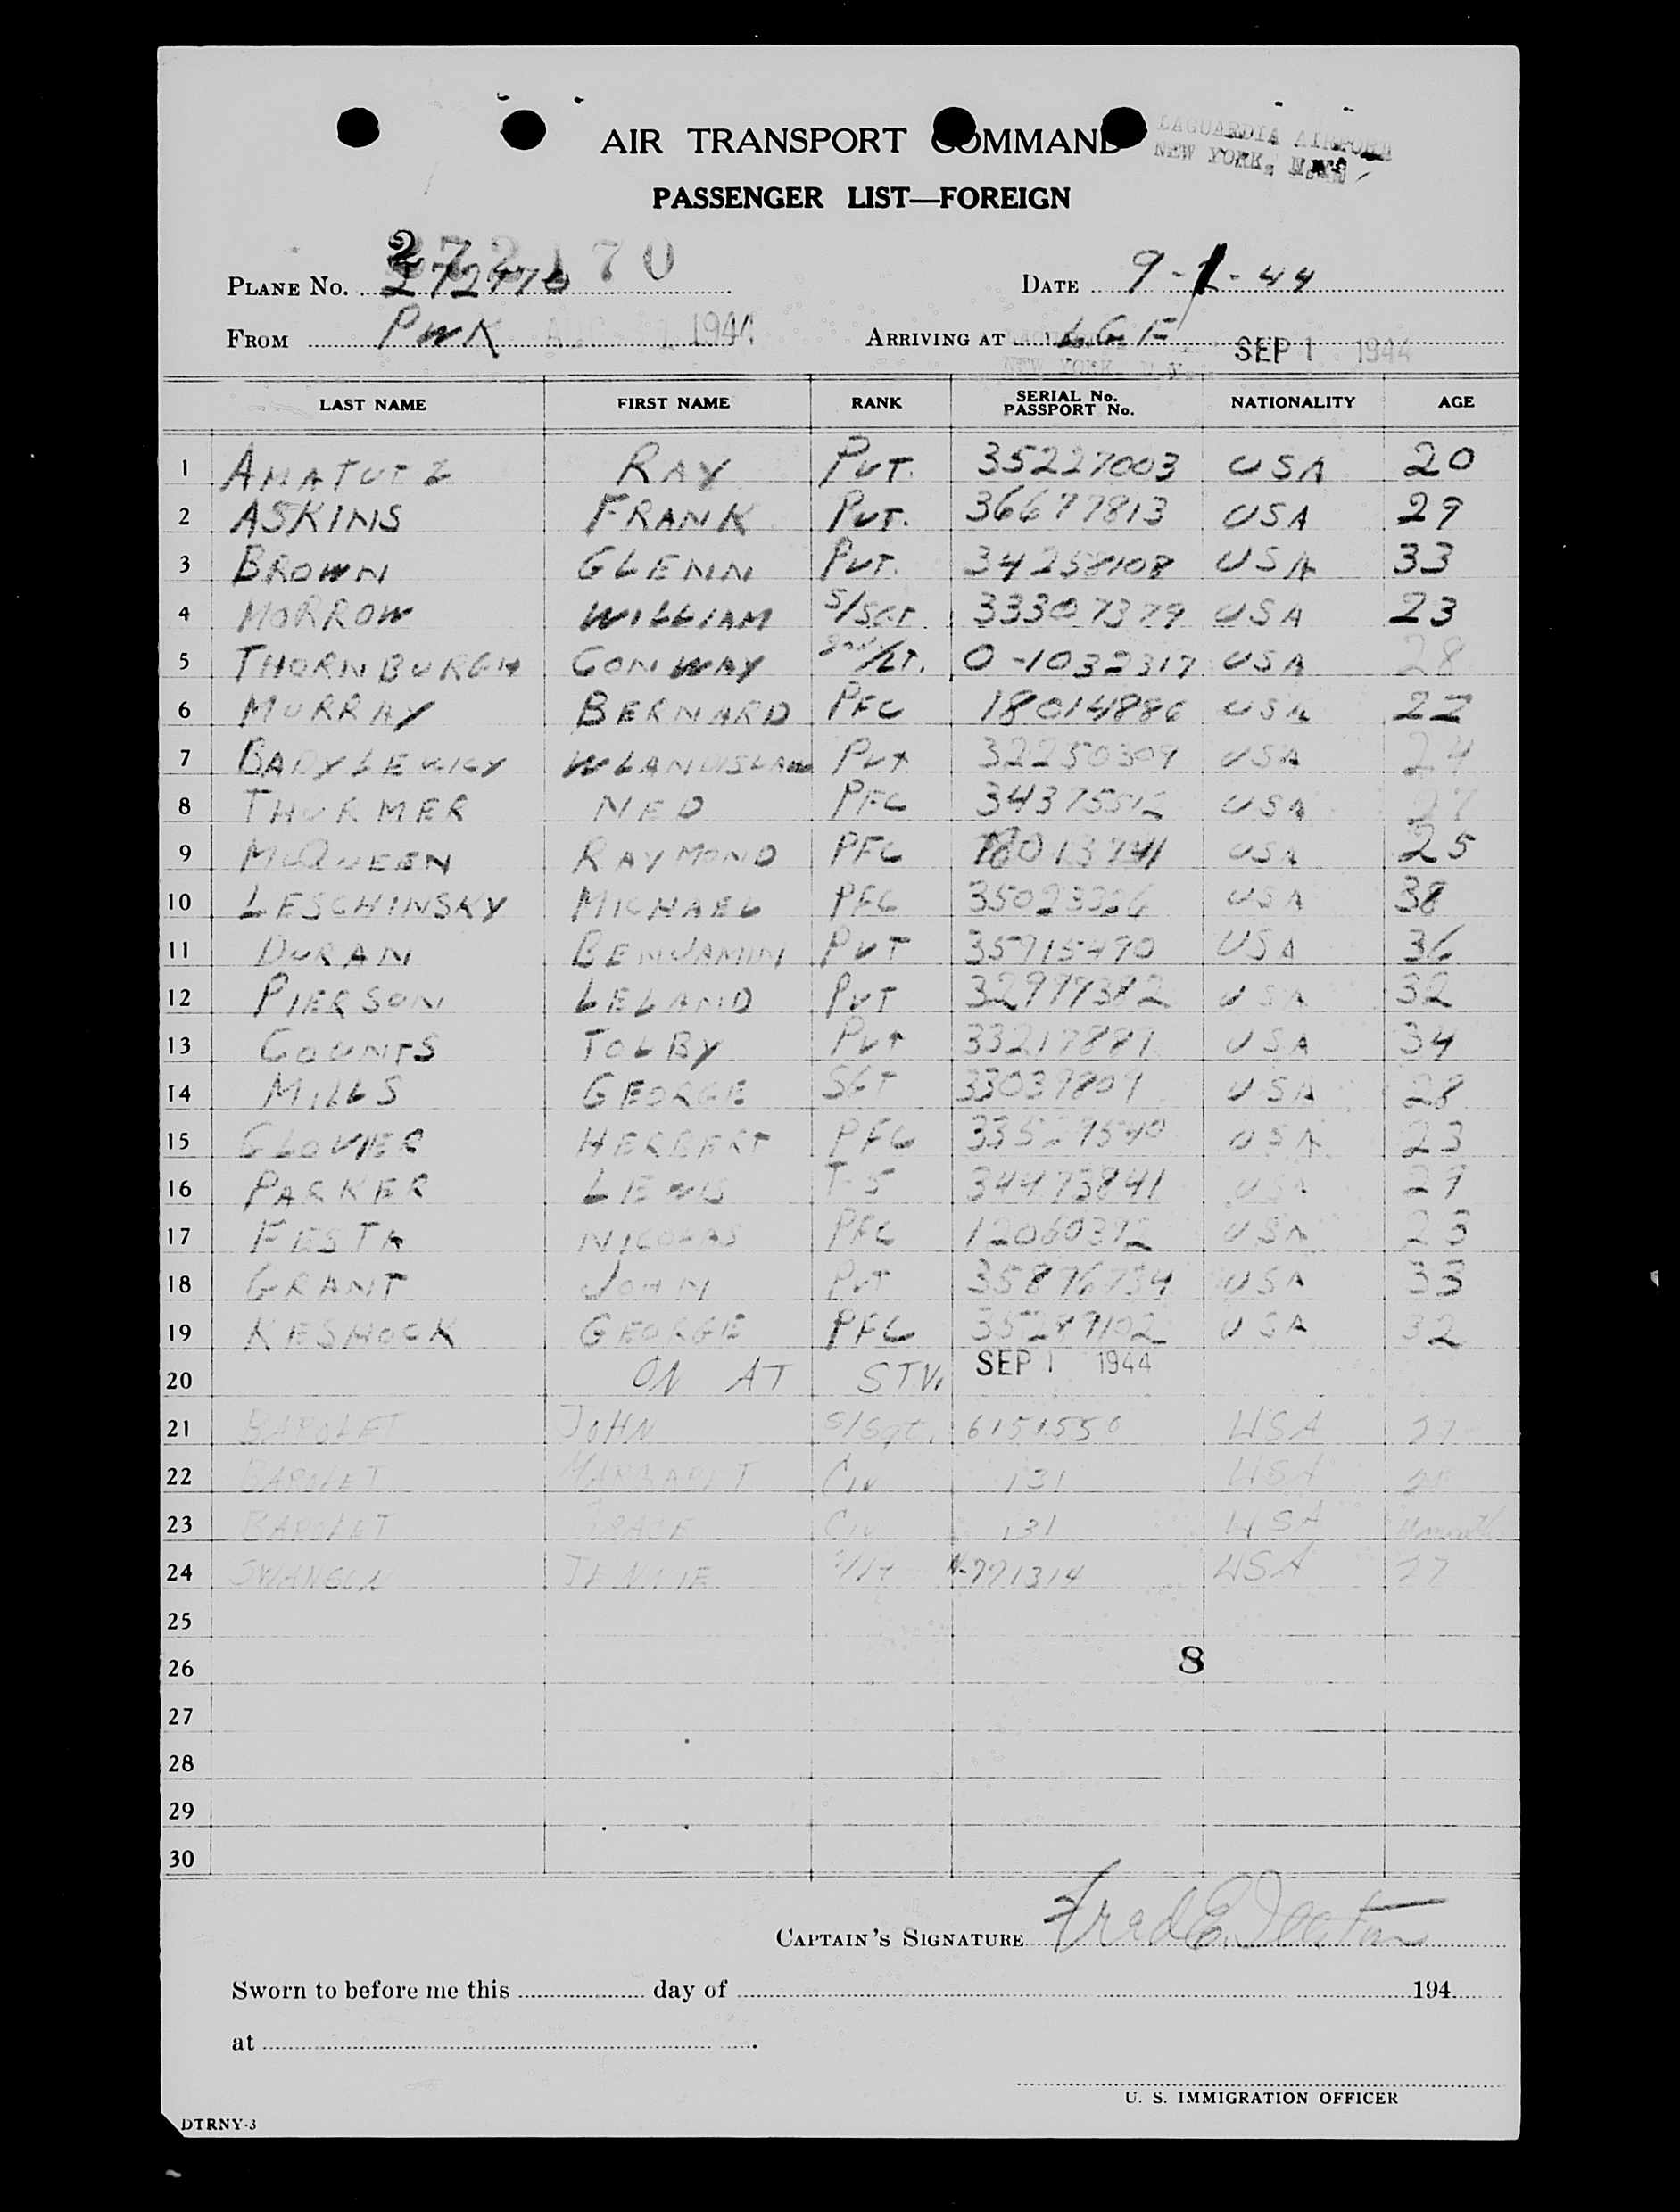 AIR TRANSPORT COMMAND
LAGUARDIA AIRPORT
NEW YORK, N.Y.
PASSENGER LIST—FOREIGN
272170
PLANE No. 272170 DATE 9-1-44
FROM PWK 1944 ARRIVING AT LGF SEP 1 1944
NEW YORK, N.Y.
LAST NAME FIRST NAME RANK SERIAL No. PASSPORT No. NATIONALITY AGE
1 AMATUTZ RAY PVT. 35227003 USA 20
2 ASKINS FRANK PVT. 36677813 USA 29
3 BROWN GLENN PVT. 34258108 USA 33
4 MORROW WILLIAM S/SGT. 33307379 USA 23
5 THORNBURGH CONWAY 2nd/LT. O-1032317 USA 28
6 MURRAY BERNARD PFC 18014886 USA 22
7 PVT 32250309 USA 24
8 THURMER NED PFC USA 27
9 MCQUEEN RAYMOND PFC USA 25
10 LESCHINSKY MICHAEL PFC 35023326 USA 38
11 DURAN BENJAMIN PVT 35915490 USA 36
12 PIERSON LELAND PVT USA 32
13 COUNTS TOLBY PVT USA 34
14 MILLS GEORGE SGT 33039809 USA 28
15 GLOVIER HERBERT PFC USA 23
16 PARKER LEWIS T-5 34473841 USA 29
17 FESTA NICOLAS PFC 12060392 USA 23
18 GRANT JOHN PVT 35876734 USA 33
19 KESHOCK GEORGE PFC 35287102 USA 32
20 ON AT STV. SEP 1 1944
21 BAROLET JOHN S/Sgt. 6151550 USA 27
22 BAROLET MARGARET Civ 131 USA
23 BAROLET GRACE Civ 131 USA
24 SWANSON JENNIE N-771314 USA 27
25
26 8
27
28
29
30
CAPTAIN'S SIGNATURE Fred E.
Sworn to before me this day of 194
at
U. S. IMMIGRATION OFFICER
DTRNY-3